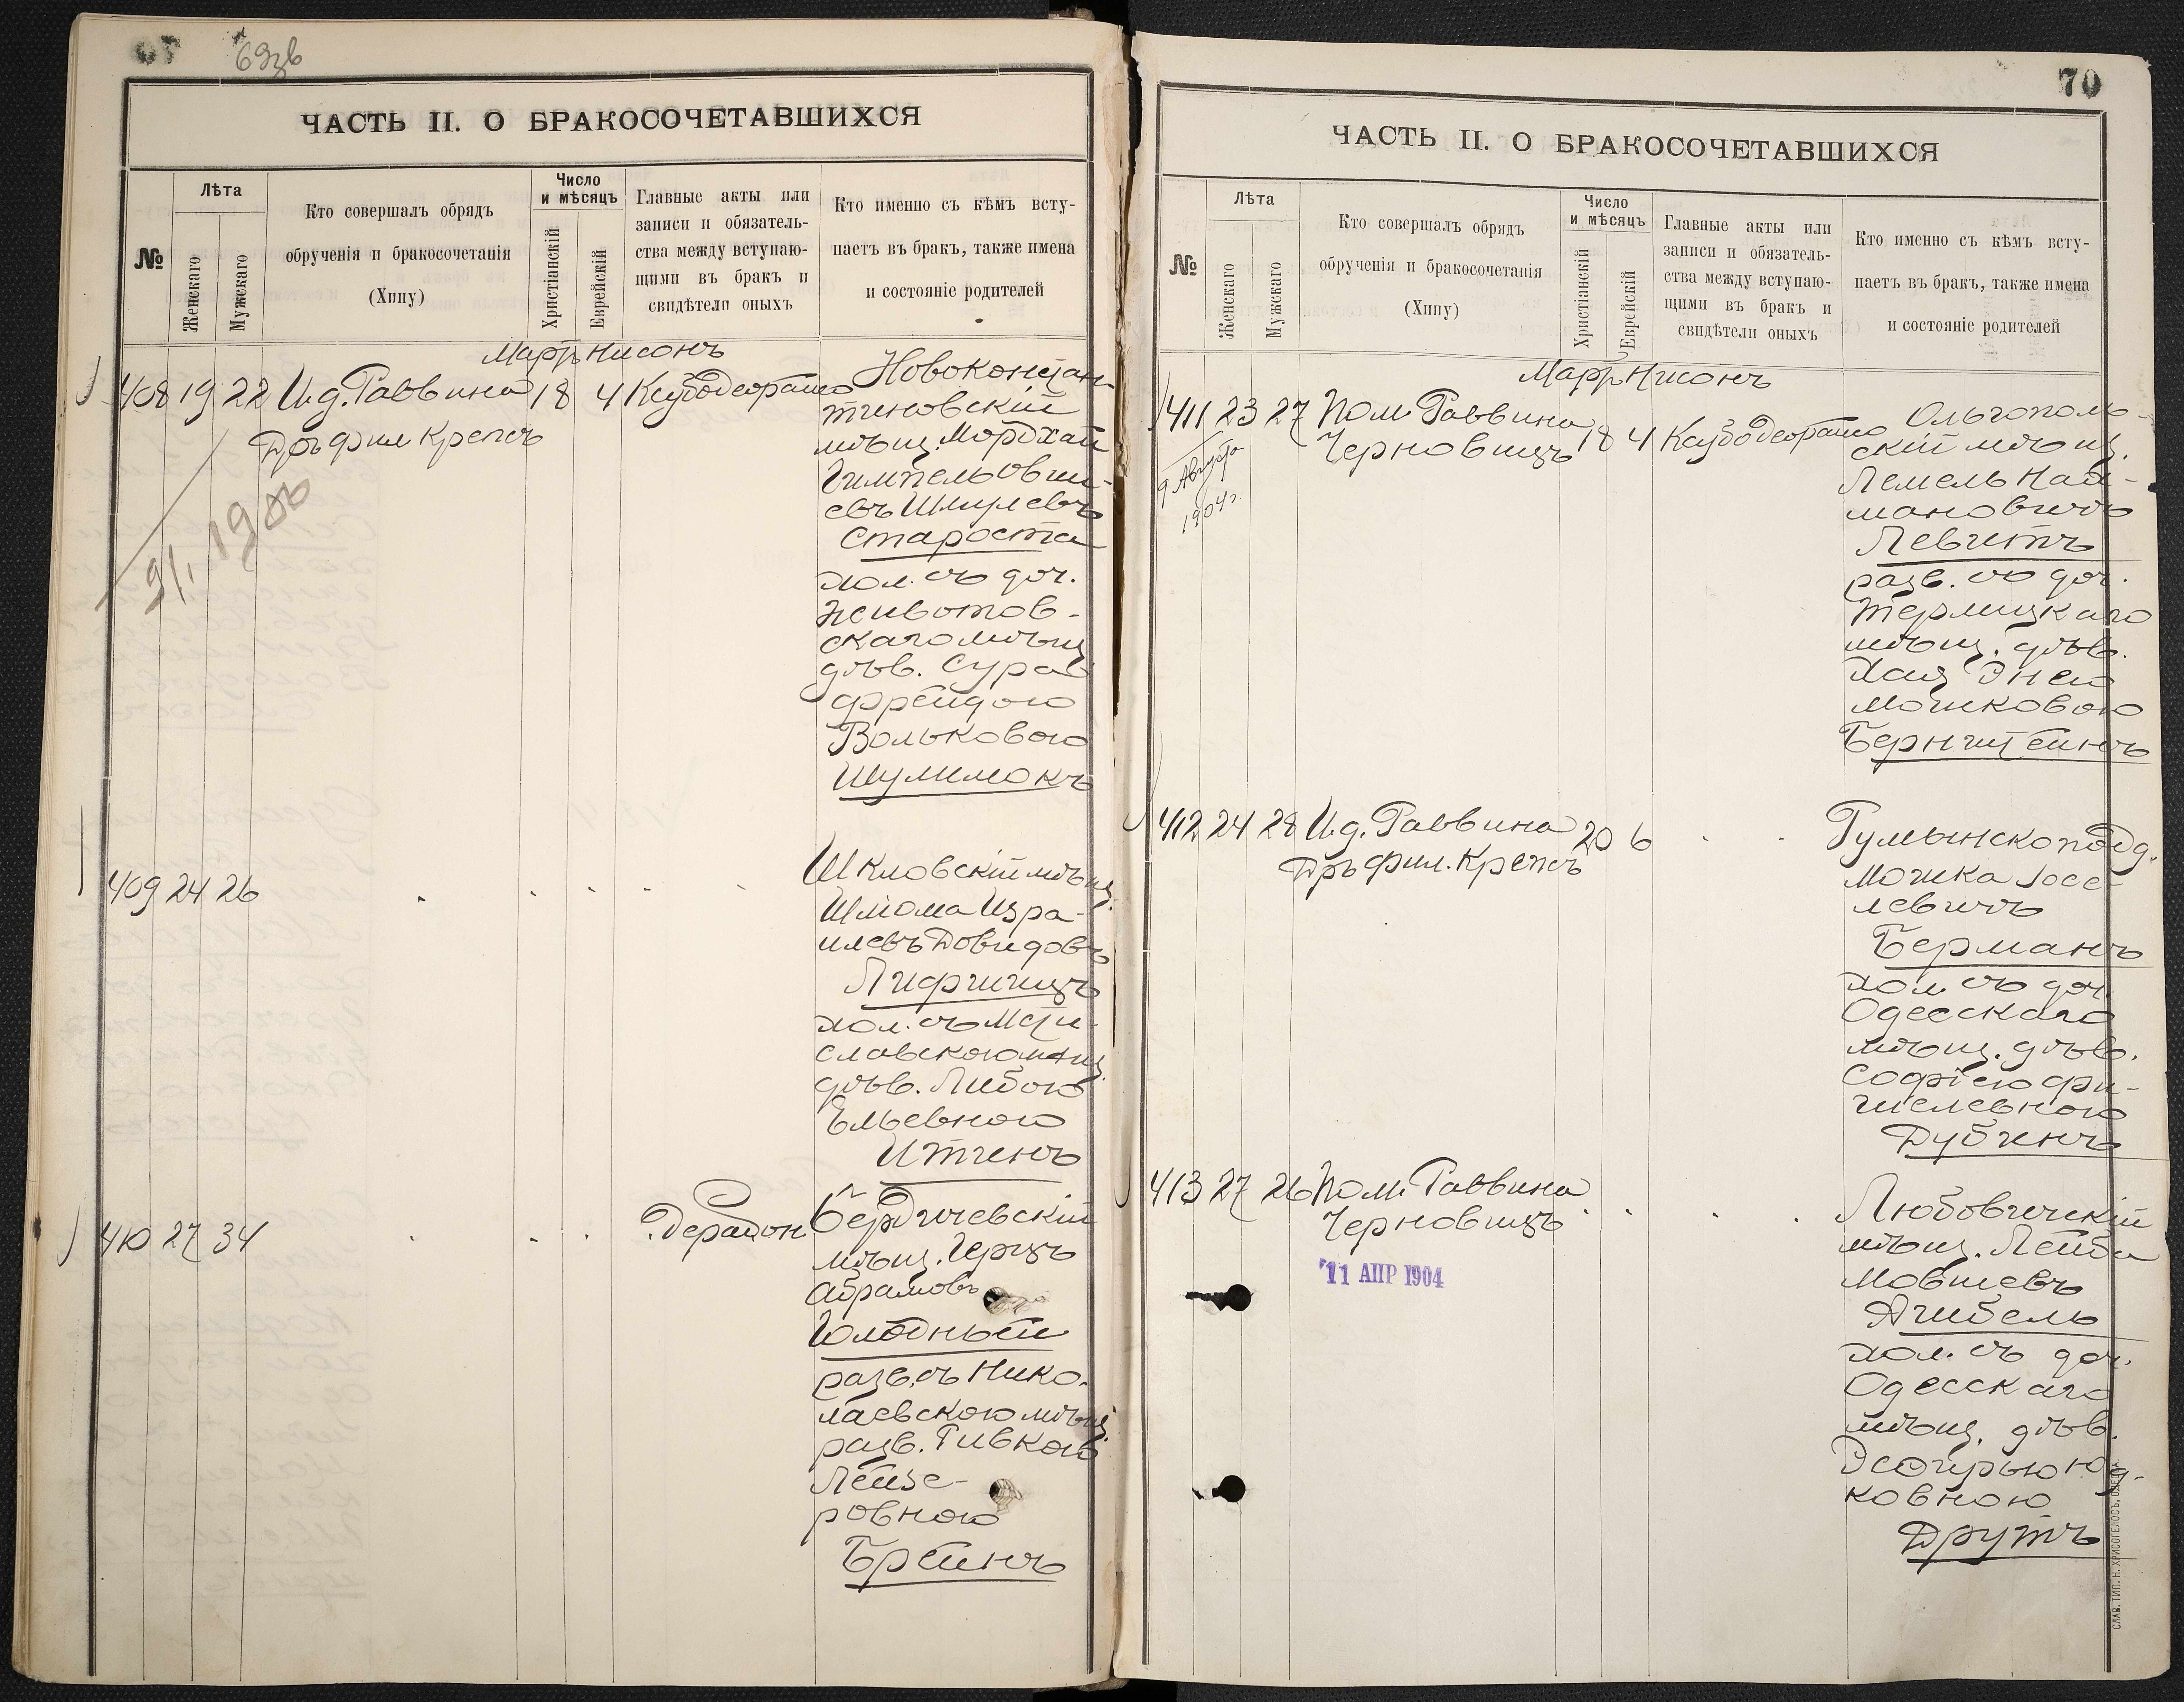 69зв
ЧАСТЬ II. О БРАКОСОЧЕТАВШИХСЯ
№
Лѣта
Женскаго
Мужскаго
Кто совершалъ обрядъ
обрученія и бракосочетанія
(Хипу)
Число
и мѣсяцъ
Христіанскій
Еврейскій
Главные акты или
записи и обязатель-
ства между вступаю-
щими въ бракъ и
свидѣтели оныхъ
Кто именно съ кѣмъ всту-
паетъ въ бракъ, также имена
и состояніе родителей
Мартъ Нисонъ
408 19 22 И.д. Раввина 18 4
Дръ фил Крепсъ
1900
Новоконстан-
тиновскій
мѣщ. Мордхай
Гимпель Овші-
евъ Шмулевъ
Староста
хол. съ доч.
Животов-
скаго мѣщ.
дѣв. Сура
Фрейдою
Вольковою
Шулимокъ
409 24 26
Шкловскій мѣщ.
Шлома Изра-
илевъ Довидовъ
Лифшицъ
хол. съ Мсти-
славскою мѣщ.
дѣв. Либою
Ельевною
Итинъ
410 27 34
Бердичевскій
мѣщ. Герцъ
Абрамовъ
Голодный
разв. съ Нико-
лаевскою мѣщ.
разв. Ривкою
Лейзе-
ровною
Брейнъ
70
ЧАСТЬ II. О БРАКОСОЧЕТАВШИХСЯ
№
Лѣта
Женскаго
Мужскаго
Кто совершалъ обрядъ
обрученія и бракосочетанія
(Хипу)
Число
и мѣсяцъ
Христіанскій
Еврейскій
Главные акты или
записи и обязатель-
ства между вступаю-
щими въ бракъ и
свидѣтели оныхъ
Кто именно съ кѣмъ всту-
паетъ въ бракъ, также имена
и состояніе родителей
Мартъ Нисонъ
411 23 27 Пом. Раввина
Черновицъ 18 4
9 Августа
1904 г.
Ольгополь-
скій мѣщ.
Лемель Най-
мановичъ
Левитъ
разв. съ доч.
мѣщ. дѣв.
Хая Энею
Мошковою
Бернштейнъ
412 24 28 И.д. Раввина 20 6
Дръ фил. Крепсъ
Румынско подд.
Мошка Iосе-
левичъ
Берманъ
хол. съ доч.
Одесскаго
мѣщ. дѣв.
Софіею Фи-
шелевною
Дубинъ
413 27 26 Пом. Раввина
Черновицъ
11 АПР 1904
Любовичскій
мѣщ. Лейба
Мовшевъ
Хайбель
хол. съ доч.
Одесскаго
мѣщ. дѣв.
Эсѳирью Юд-
ковною
Друтъ
СЛАВ. ТИП. Н. ХРИСОГЕЛОСЪ, ОДЕССА